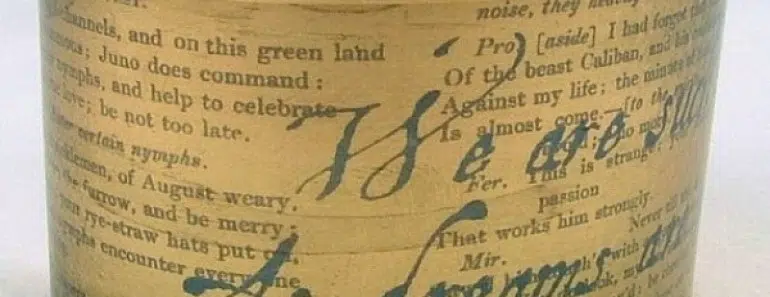 channels, and on this green land
Juno does command :
nymphs, and help to celebrate
love; be not too late.
certain nymphs.
of August weary,
the furrow, and be merry ;
rye-straw hats put on,
encounter every one
noise, they
Pro. [aside] I had forgot
Of the beast Caliban, and his
Against my life; the minute
Is almost come.—[to the
no more
Fer. This is strange;
passion
That works him strongly.
Mir. Never till
with
We are such
As dreams are